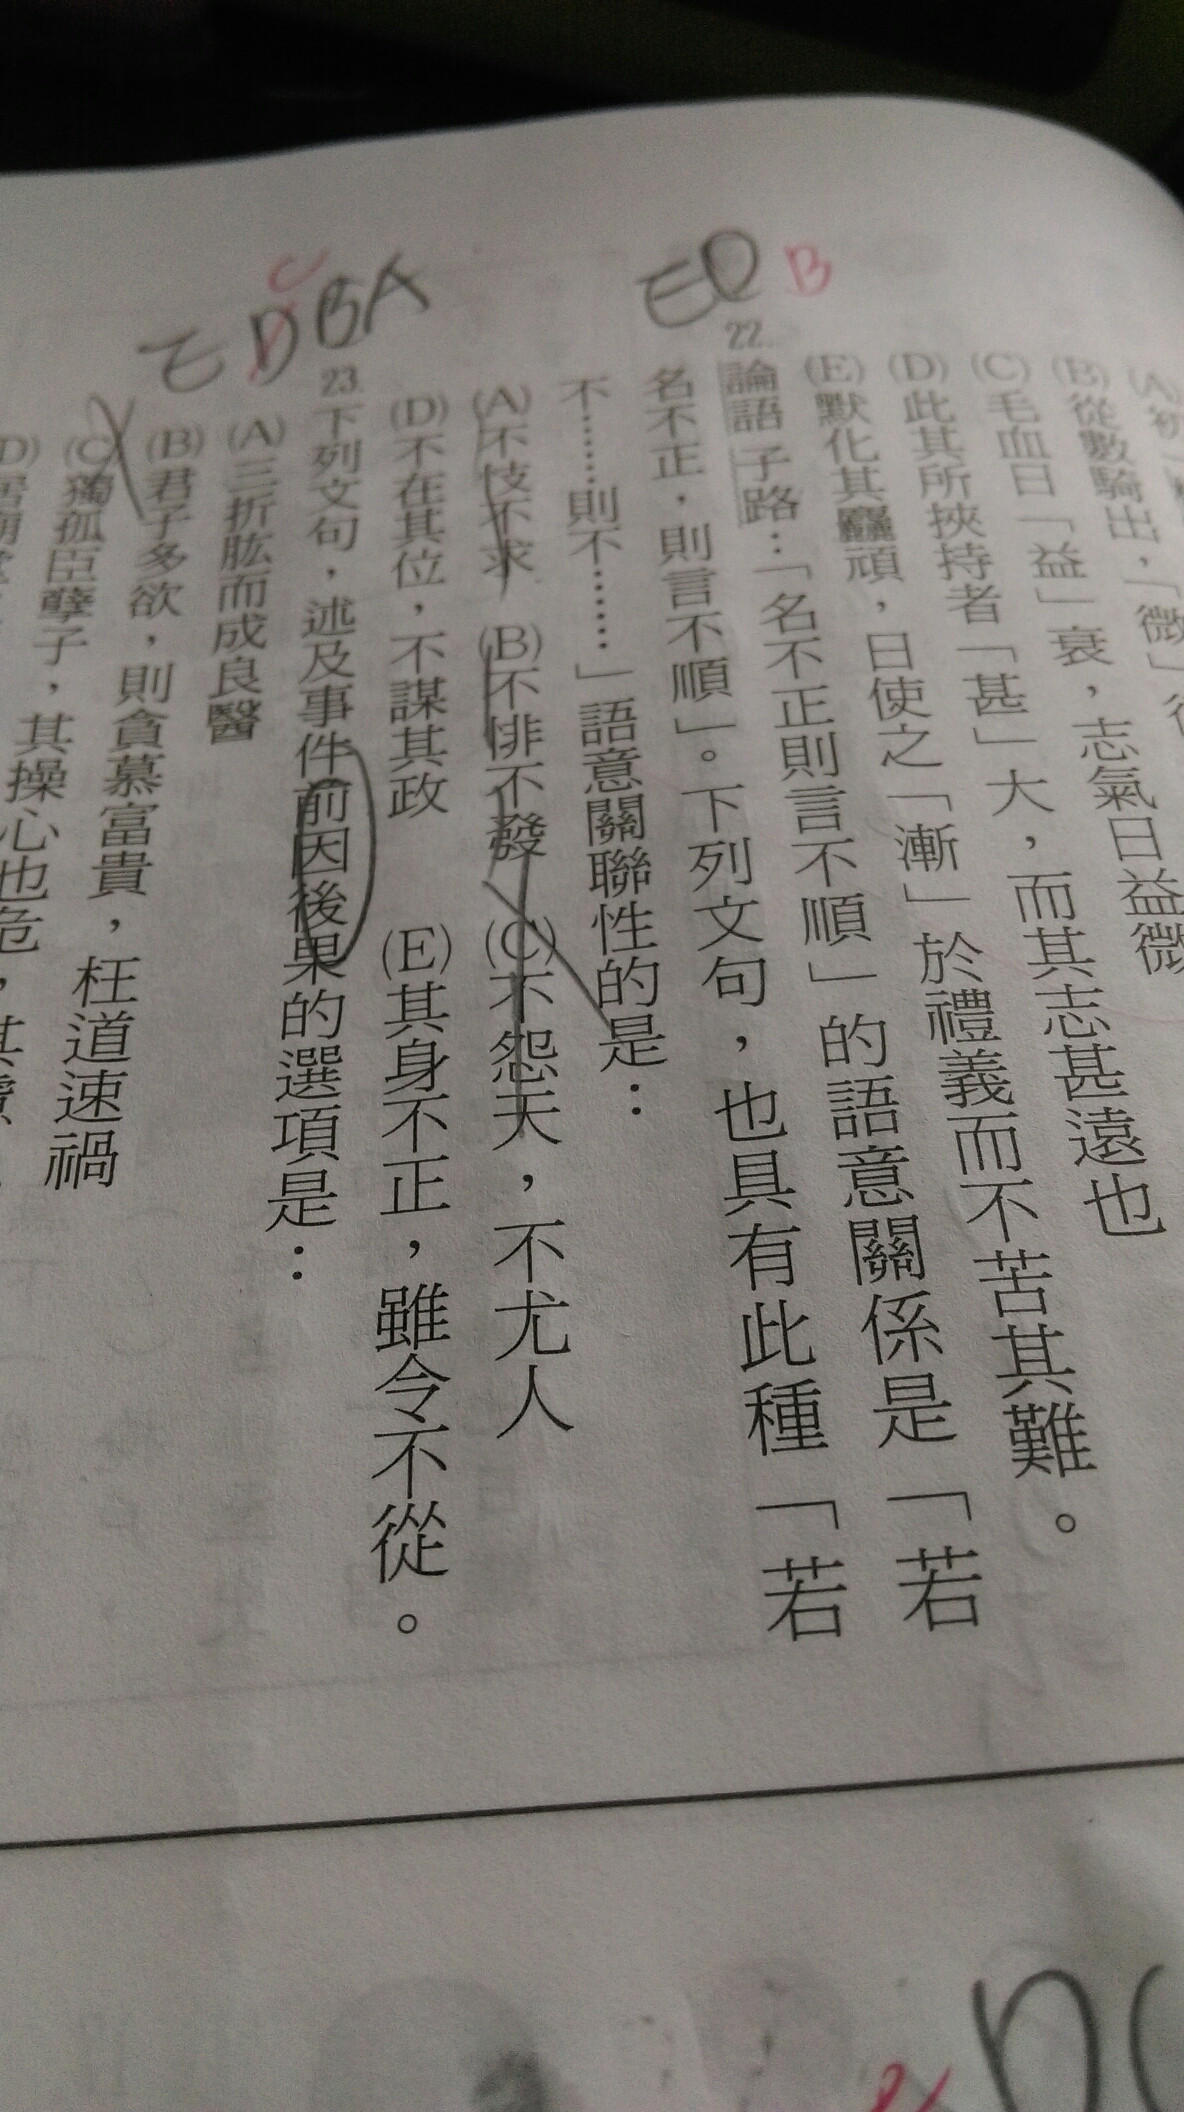 (B)從數騎出，「微」
(C)毛血日「益」衰，志氣日益微
(D)此其所挾持者「甚」大，而其志甚遠也
(E)默化其麤頑，日使之「漸」於禮義而不苦其難。
22.論語子路：「名不正則言不順」的語意關係是「若
名不正，則言不順」。下列文句，也具有此種「若
不……則不……」語意關聯性的是：
(A)不忮不求 (B)不悱不發 (C)不怨天，不尤人
(D)不在其位，不謀其政 (E)其身不正，雖令不從。
23.下列文句，述及事件前因後果的選項是：
(A)三折肱而成良醫
(B)君子多欲，則貪慕富貴，枉道速禍
(C)獨孤臣孽子，其操心也危，其慮
ED B
EDBA
C